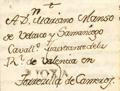 A D.n Mariano Manso
de Velasco y Samaniego
Cavall.o Maestrante de la
R.l de Valencia en
Torrecilla de Cameros.